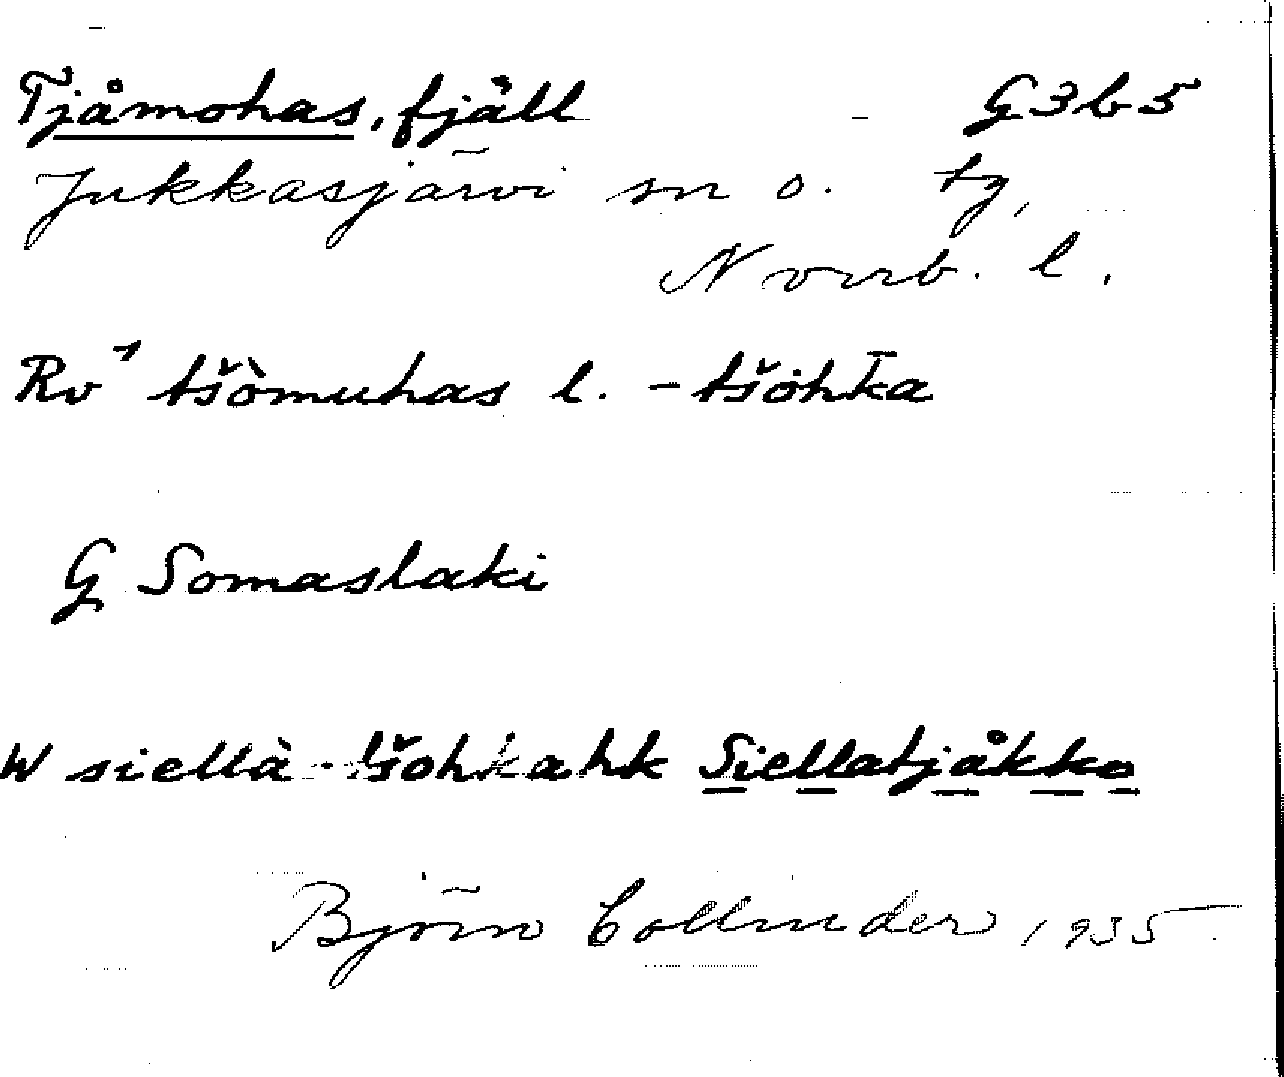 Tjåmohas, fjäll G3b5
Jukkasjärvi sn o. tg,
Norrb. l.
Rv¹ tšòmuhas l. -tšohka
G Somaslaki
W siellà-tšohkahk Siellatjåkko
Björn Collinder 1935